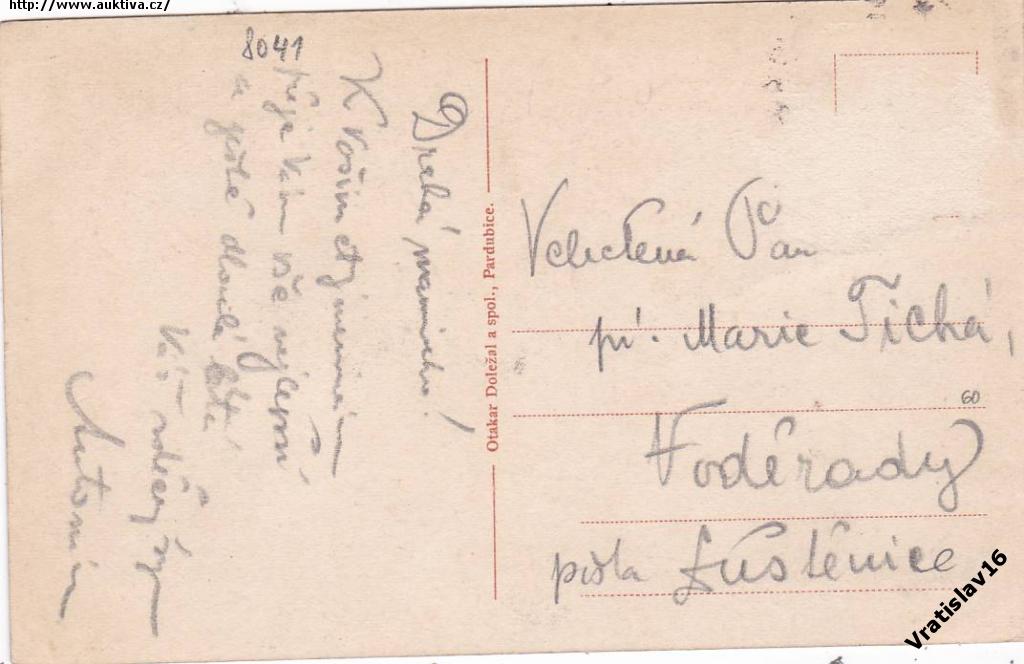 http://www.auktiva.cz/
8041
Drahá maminko!
K Vašim
přeji Vám vše nejlepší
a ještě dlouhá léta
Váš vděčný syn
Antonín
Otakar Doležal a spol., Pardubice.
Velectěná Paní
pí. Marie Tichá,
60
Voděrady
pošta Luštěnice
Vratislav16